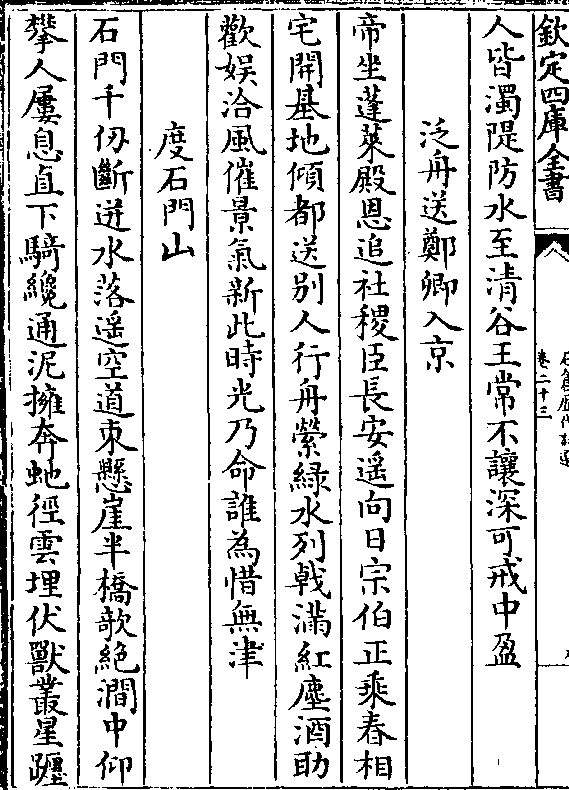 欽定四庫全書
卷二十三
人皆濁隄防水至清谷王常不讓深可戒中盈
泛舟送鄭卿入京
帝坐蓬萊殿恩追社稷臣長安遥向日宗伯正乘春相
宅開基地傾都送别人行舟縈緑水列㦸滿紅塵酒助
歡娱洽風催景氣新此時光乃命誰為惜無津
度石門山
石門千仞斷迸水落遥空道束懸崖半橋欹絶澗中仰
攀人屢息直下騎纔通泥擁奔虵徑雲埋伏獸叢星躔